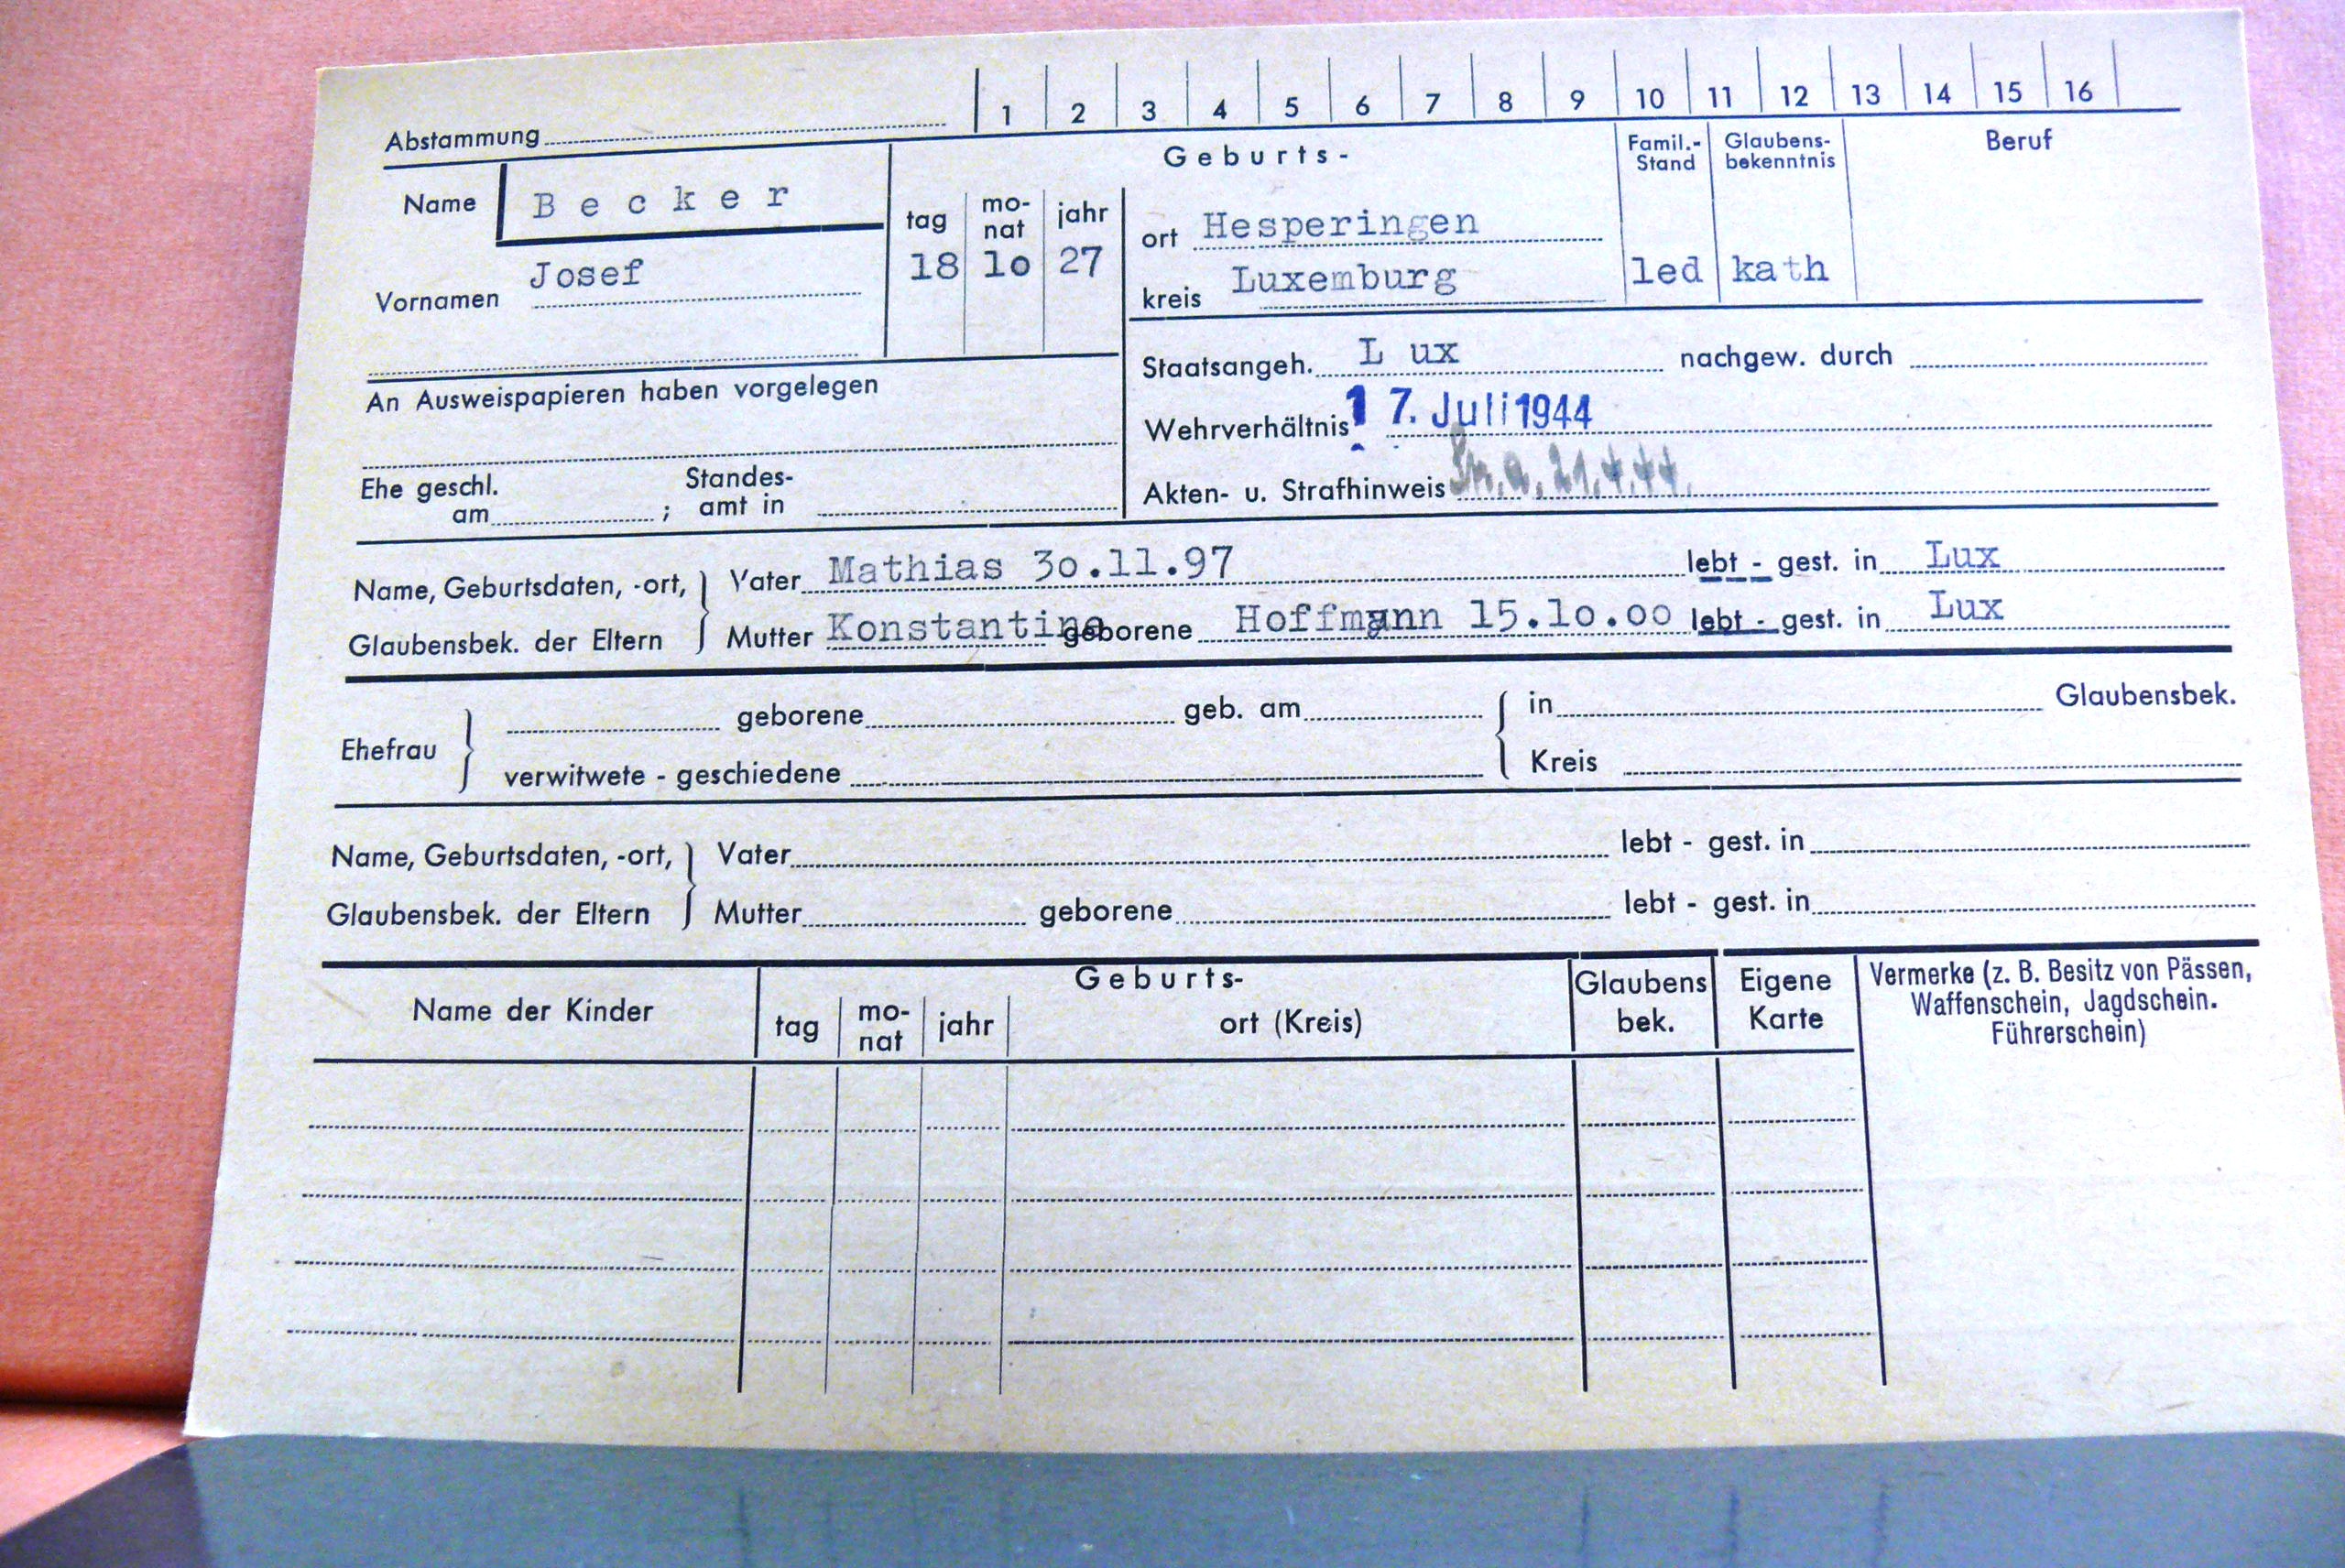 Abstammung 1 2 3 4 5 6 7 8 9 10 11 12 13 14 15 16
Name Becker
Vornamen Josef
Geburts-
tag monat jahr
18 lo 27
ort Hesperingen
kreis Luxemburg
Famil.-Stand
led
Glaubensbekenntnis
kath
Beruf
An Ausweispapieren haben vorgelegen
Staatsangeh. L ux nachgew. durch
Wehrverhältnis 17. Juli 1944
Akten- u. Strafhinweis
Ehe geschl. am ; Standesamt in
Name, Geburtsdaten, -ort, Vater Mathias 3o.11.97 lebt - gest. in Lux
Glaubensbek. der Eltern Mutter Konstantine geborene Hoffmann 15.lo.oo lebt - gest. in Lux
Ehefrau geborene geb. am in Glaubensbek.
verwitwete - geschiedene Kreis
Name, Geburtsdaten, -ort, Vater lebt - gest. in
Glaubensbek. der Eltern Mutter geborene lebt - gest. in
Name der Kinder
Geburts-
tag monat jahr ort (Kreis)
Glaubens bek.
Eigene Karte
Vermerke (z. B. Besitz von Pässen,
Waffenschein, Jagdschein.
Führerschein)